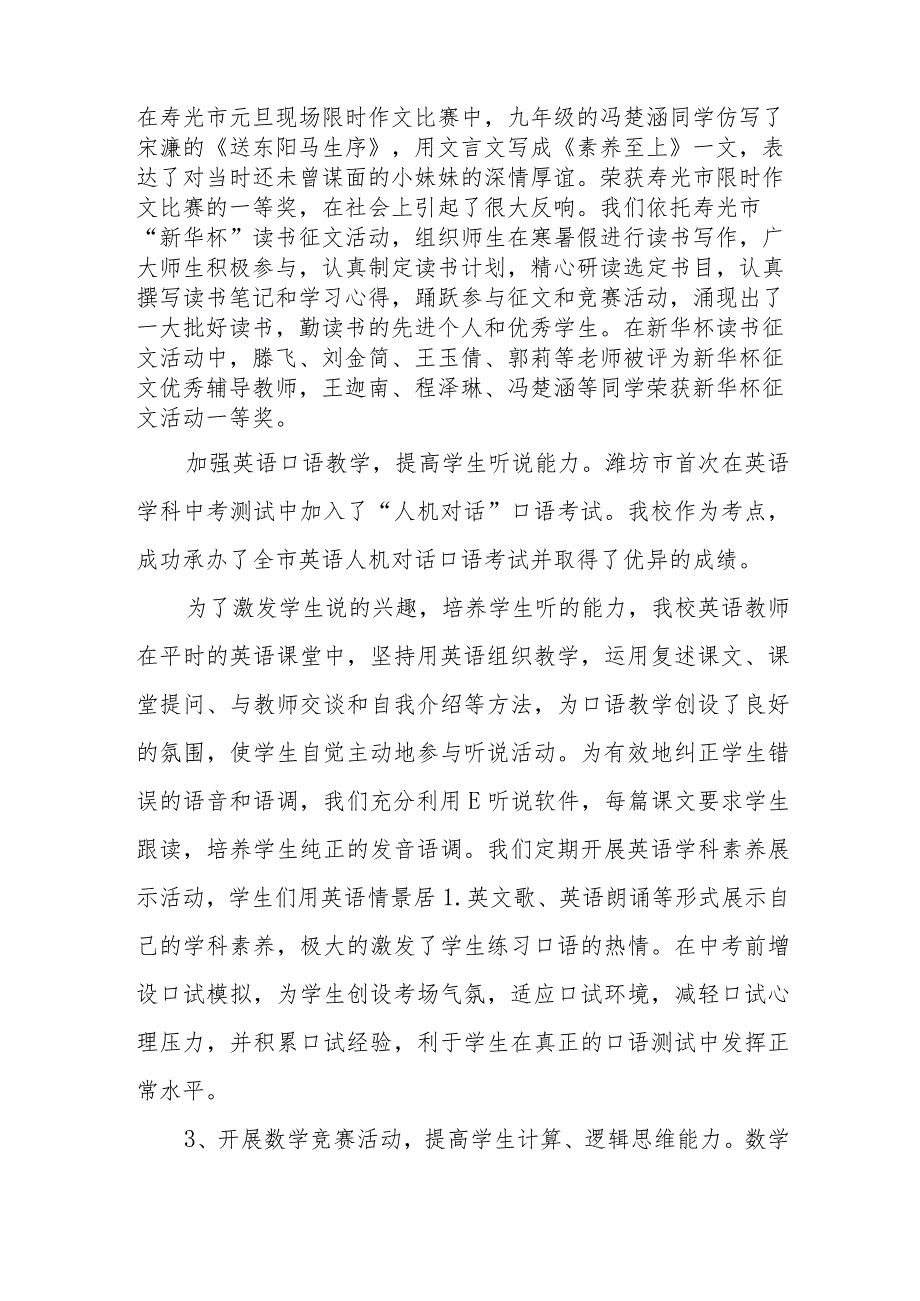 在寿光市元旦现场限时作文比赛中，九年级的冯楚涵同学仿写了
宋濂的《送东阳马生序》，用文言文写成《素养至上》一文，表
达了对当时还未曾谋面的小妹妹的深情厚谊。荣获寿光市限时作
文比赛的一等奖，在社会上引起了很大反响。我们依托寿光市
“新华杯”读书征文活动，组织师生在寒暑假进行读书写作，广
大师生积极参与，认真制定读书计划，精心研读选定书目，认真
撰写读书笔记和学习心得，踊跃参与征文和竞赛活动，涌现出了
一大批好读书，勤读书的先进个人和优秀学生。在新华杯读书征
文活动中，滕飞、刘金简、王玉倩、郭莉等老师被评为新华杯征
文优秀辅导教师，王迦南、程泽琳、冯楚涵等同学荣获新华杯征
文活动一等奖。
加强英语口语教学，提高学生听说能力。潍坊市首次在英语
学科中考测试中加入了“人机对话”口语考试。我校作为考点，
成功承办了全市英语人机对话口语考试并取得了优异的成绩。
为了激发学生说的兴趣，培养学生听的能力，我校英语教师
在平时的英语课堂中，坚持用英语组织教学，运用复述课文、课
堂提问、与教师交谈和自我介绍等方法，为口语教学创设了良好
的氛围，使学生自觉主动地参与听说活动。为有效地纠正学生错
误的语音和语调，我们充分利用E听说软件，每篇课文要求学生
跟读，培养学生纯正的发音语调。我们定期开展英语学科素养展
示活动，学生们用英语情景居1.英文歌、英语朗诵等形式展示自
己的学科素养，极大的激发了学生练习口语的热情。在中考前增
设口试模拟，为学生创设考场气氛，适应口试环境，减轻口试心
理压力，并积累口试经验，利于学生在真正的口语测试中发挥正
常水平。
3、开展数学竞赛活动，提高学生计算、逻辑思维能力。数学